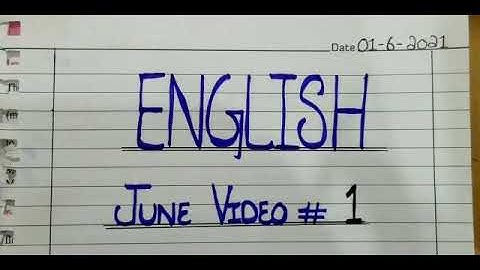 Date 01-6-2021
ENGLISH
JUNE VIDEO # 1